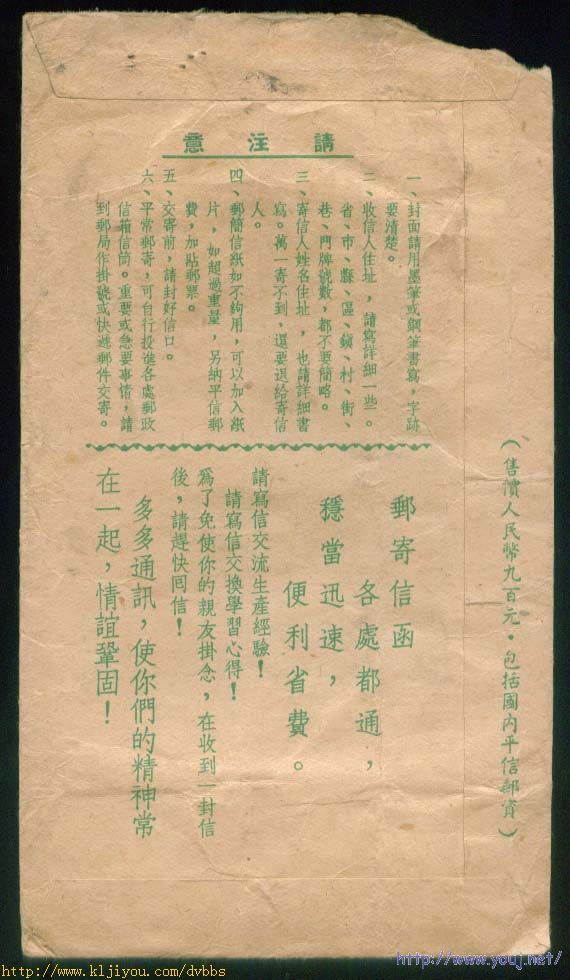 請注意
一、封面請用墨筆或鋼筆書寫，字跡
要清楚。
二、收信人住址，請寫詳細一些。
省、市、縣、區、鎮、村、街、
巷、門牌號數，都不要簡略。
三、寄信人姓名住址，也請詳細書
寫。萬一寄不到，還要退給寄信
人。
四、郵簡信紙如不夠用，可以加入紙
片，如超過重量，另納平信郵
費，加貼郵票。
五、交寄前，請封好信口。
六、平常郵寄，可自行投進各處郵政
信箱信筒。重要或急要事情，請
到郵局作掛號或快遞郵件交寄。
（售價人民幣九百元·包括國内平信郵資）
郵寄信函
各處都通，
穩當迅速，
便利省費。
請寫信交流生產經驗！
請寫信交換學習心得！
爲了免使你的親友掛念，在收到一封信
後，請趕快回信！
多多通訊，使你們的精神常
在一起，情誼鞏固！
http://www.kljiyou.com/dvbbs
http://www.youj.net/